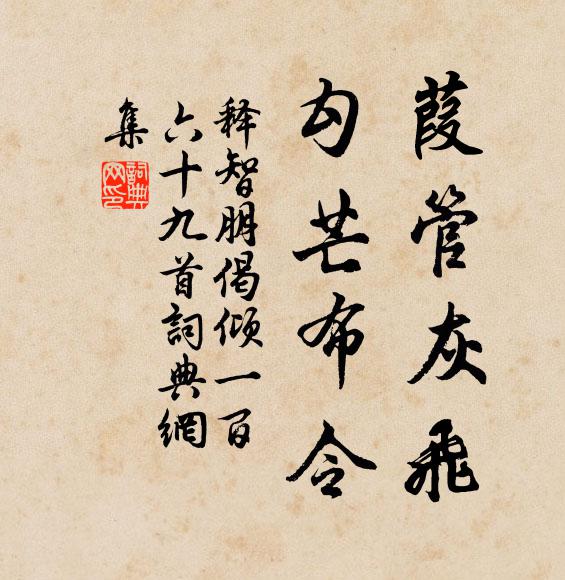 葭管灰飛
勾芒布令
釋智朋偈傾一百
六十九首詞典網
集
詞典網印